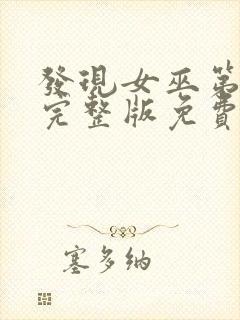 發現女巫第
完整版免費
塞多納